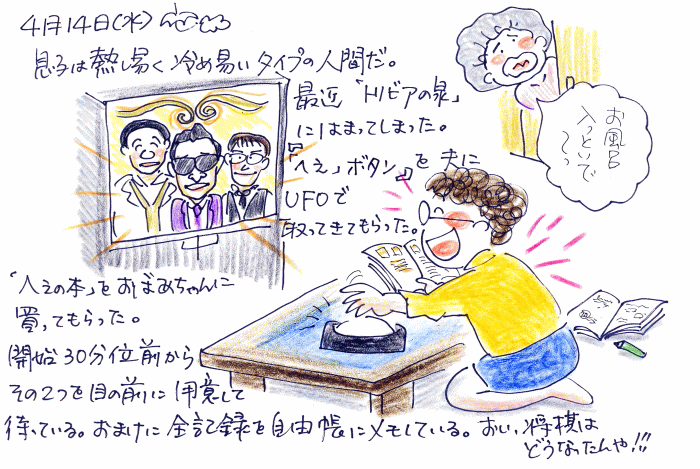 4月14日(水)
息子は熱し易く冷め易いタイプの人間だ。
最近「トリビアの泉」
にはまってしまった。
『「へえ」ボタン』を夫に
UFOで
取ってきてもらった。
「へえの本」をおばあちゃんに
買ってもらった。
開始30分位前から
その2つを目の前に用意して
待っている。おまけに全記録を自由帳にメモしている。おい、将棋は
どうなったんや!!!
お風呂
入っといで
てっ